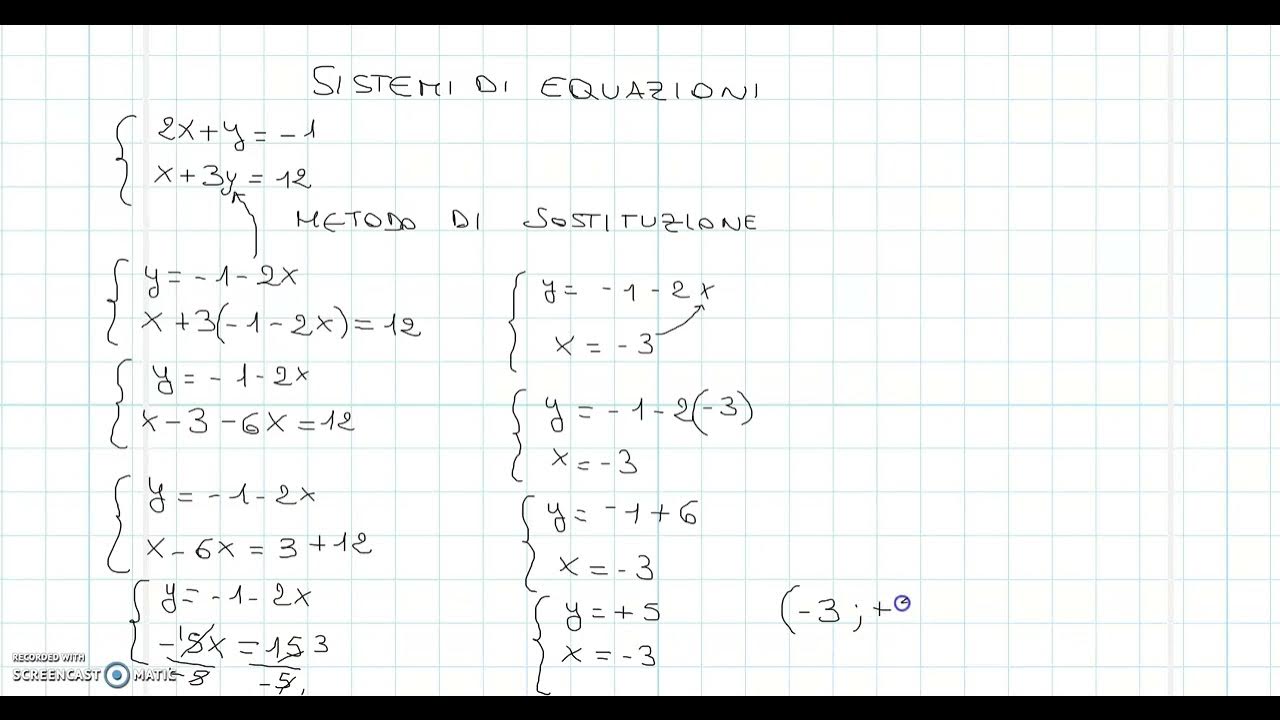 SISTEMI DI EQUAZIONI
2x+y=-1
x+3y=12
METODO DI SOSTITUZIONE
y=-1-2x
x+3(-1-2x)=12
y=-1-2x
x-3-6x=12
y=-1-2x
x-6x=3+12
y=-1-2x
-15x=153
-5 -5
y=-1-2x
x=-3
y=-1-2(-3)
x=-3
y=-1+6
x=-3
y=+5
x=-3
(-3;+
RECORDED WITH
SCREENCAST MATIC